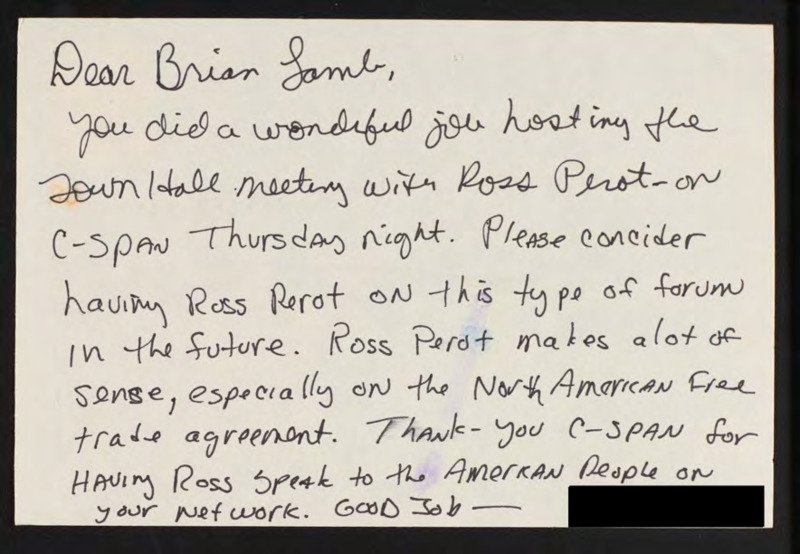 Dear Brian Lamb,
you did a wonderful job hosting the
Town Hall meeting with Ross Perot-on
C-SPAN Thursday night. Please concider
having Ross Perot on this type of forum
in the future. Ross Perot makes alot of
sense, especially on the North American Free
trade agreement. Thank-you C-SPAN for
Having Ross speak to the American People on
your network. GOOD Job —